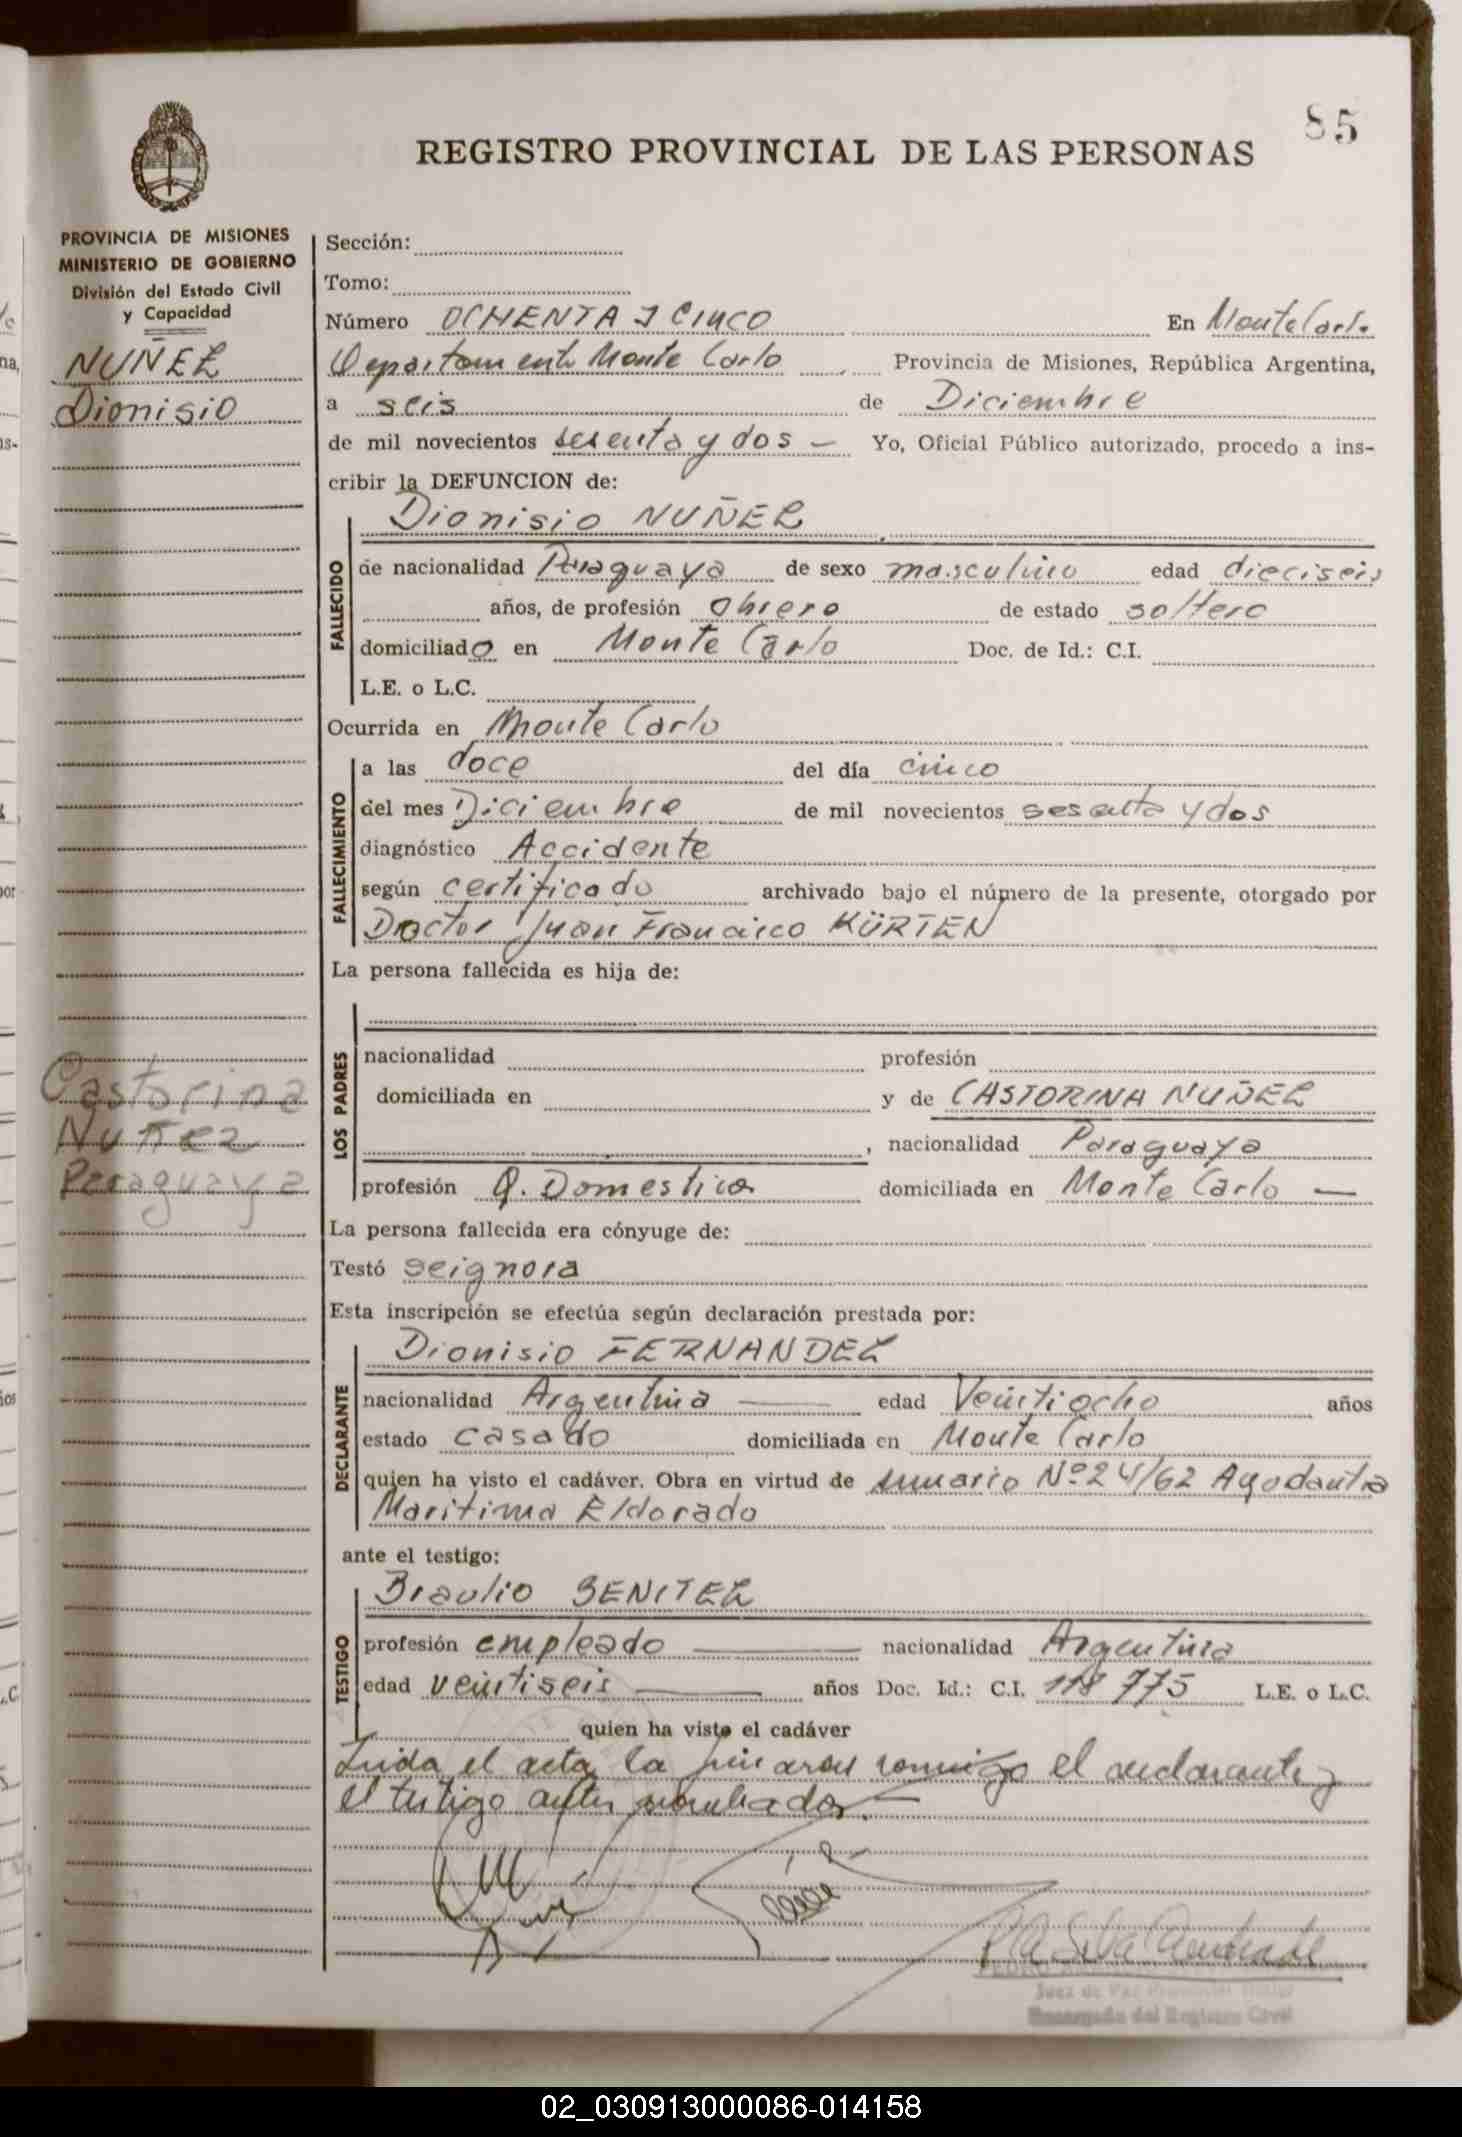 85
REGISTRO PROVINCIAL DE LAS PERSONAS
PROVINCIA DE MISIONES
MINISTERIO DE GOBIERNO
División del Estado Civil
y Capacidad
NUÑEZ
Dionisio
Castorina
Nuñez
Paraguaya
Sección:
Tomo:
Número OCHENTA Y CINCO En Monte Carlo
Departamento Monte Carlo Provincia de Misiones, República Argentina,
a seis de Diciembre
de mil novecientos sesenta y dos — Yo, Oficial Público autorizado, procedo a ins-
cribir la DEFUNCION de:
Dionisio NUÑEZ
FALLECIDO
de nacionalidad Paraguaya de sexo masculino edad dieciseis
años, de profesión obrero de estado soltero
domiciliado en Monte Carlo Doc. de Id.: C.I.
L.E. o L.C.
Ocurrida en Monte Carlo
FALLECIMIENTO
a las doce del día cinco
del mes Diciembre de mil novecientos sesenta y dos
diagnóstico Accidente
según certificado archivado bajo el número de la presente, otorgado por
Doctor Juan Francisco KÜRTEN
La persona fallecida es hija de:
LOS PADRES
nacionalidad profesión
domiciliada en y de CASTORINA NUÑEZ
, nacionalidad Paraguaya
profesión Q. Domestica domiciliada en Monte Carlo —
La persona fallecida era cónyuge de:
Testó seignora
Esta inscripción se efectúa según declaración prestada por:
Dionisio FERNANDEZ
DECLARANTE
nacionalidad Argentina — edad Veintiocho años
estado casado domiciliada en Monte Carlo
quien ha visto el cadáver. Obra en virtud de sumario Nº 24/62 Ayudantia
Maritima Eldorado
ante el testigo:
Braulio BENITEZ
TESTIGO
profesión empleado — nacionalidad Argentina
edad veintiseis — años Doc. Id.: C.I. 118775 L.E. o L.C.
quien ha visto el cadáver
Leida el acta la firman conmigo el declarante y
el testigo antes nombrados. —
Juez de Paz
Encargado del Registro Civil
02_030913000086-014158